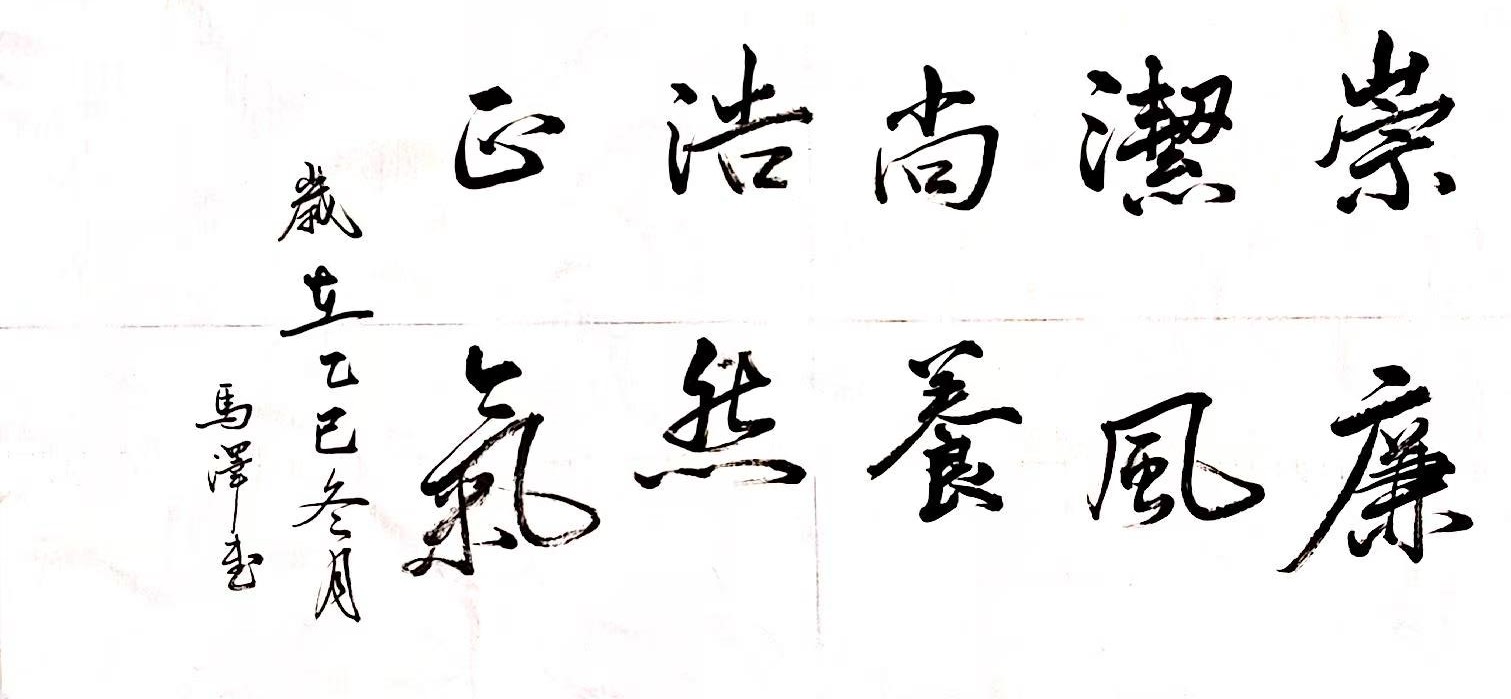 崇廉
潔風
尚養
浩然
正氣
歲在乙巳冬月
馬澤書